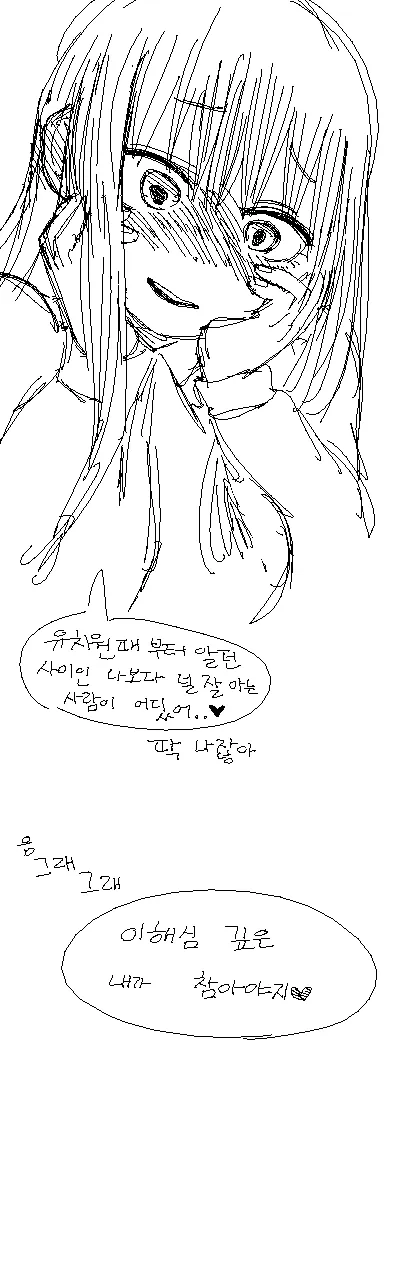 유치원때 부터 알던
사이인 나보다 널 잘 아는
사람이 어딨어..♥
딱 나잖아
응
그래
그래
이해심 깊은
내가 참아야지♥